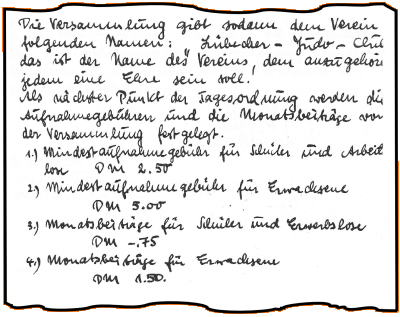 Die Versammlung gibt sodann dem Verein
folgenden Namen: Lübecker - Judo - Club
das ist der Name des Vereins, dem anzugehören
jedem eine Ehre sein soll.
Als nächster Punkt der Tagesordnung werden die
Aufnahmegebühren und die Monatsbeiträge von
der Versammlung festgelegt.
1.) Mindestaufnahmegebühr für Schüler und Arbeit
lose DM 2.50
2.) Mindestaufnahmegebühr für Erwachsene
DM 5.00
3.) Monatsbeiträge für Schüler und Erwerbslose
DM -.75
4.) Monatsbeiträge für Erwachsene
DM 1.50.